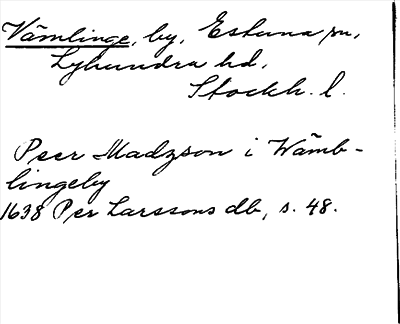 Vämlinge, by, Estuna sn,
Lyhundra hd,
Stockh. l.
Peer Madzson i Wämb-
lingeby
1638 Per Larssons db, s. 48.